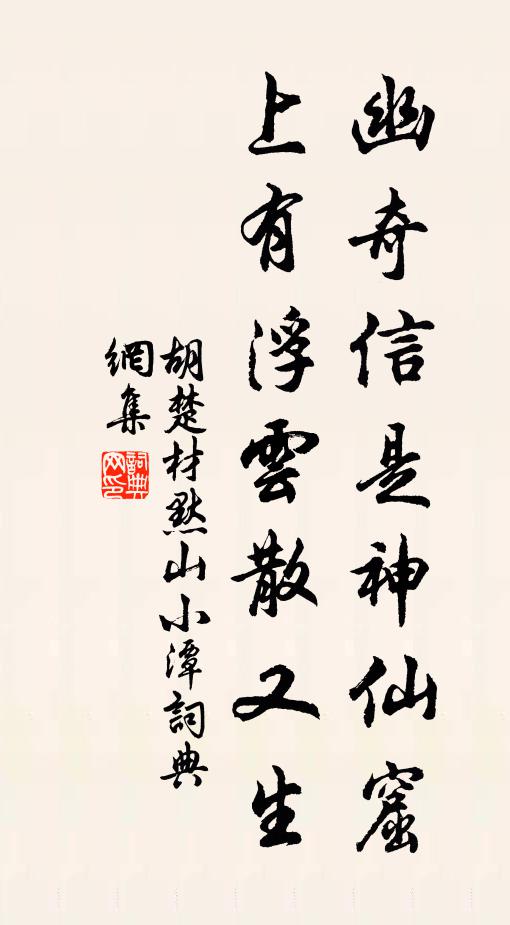 幽奇信是神仙窟
上有浮雲散又生
胡楚材黙山小潭詞典
網集
詞典網印